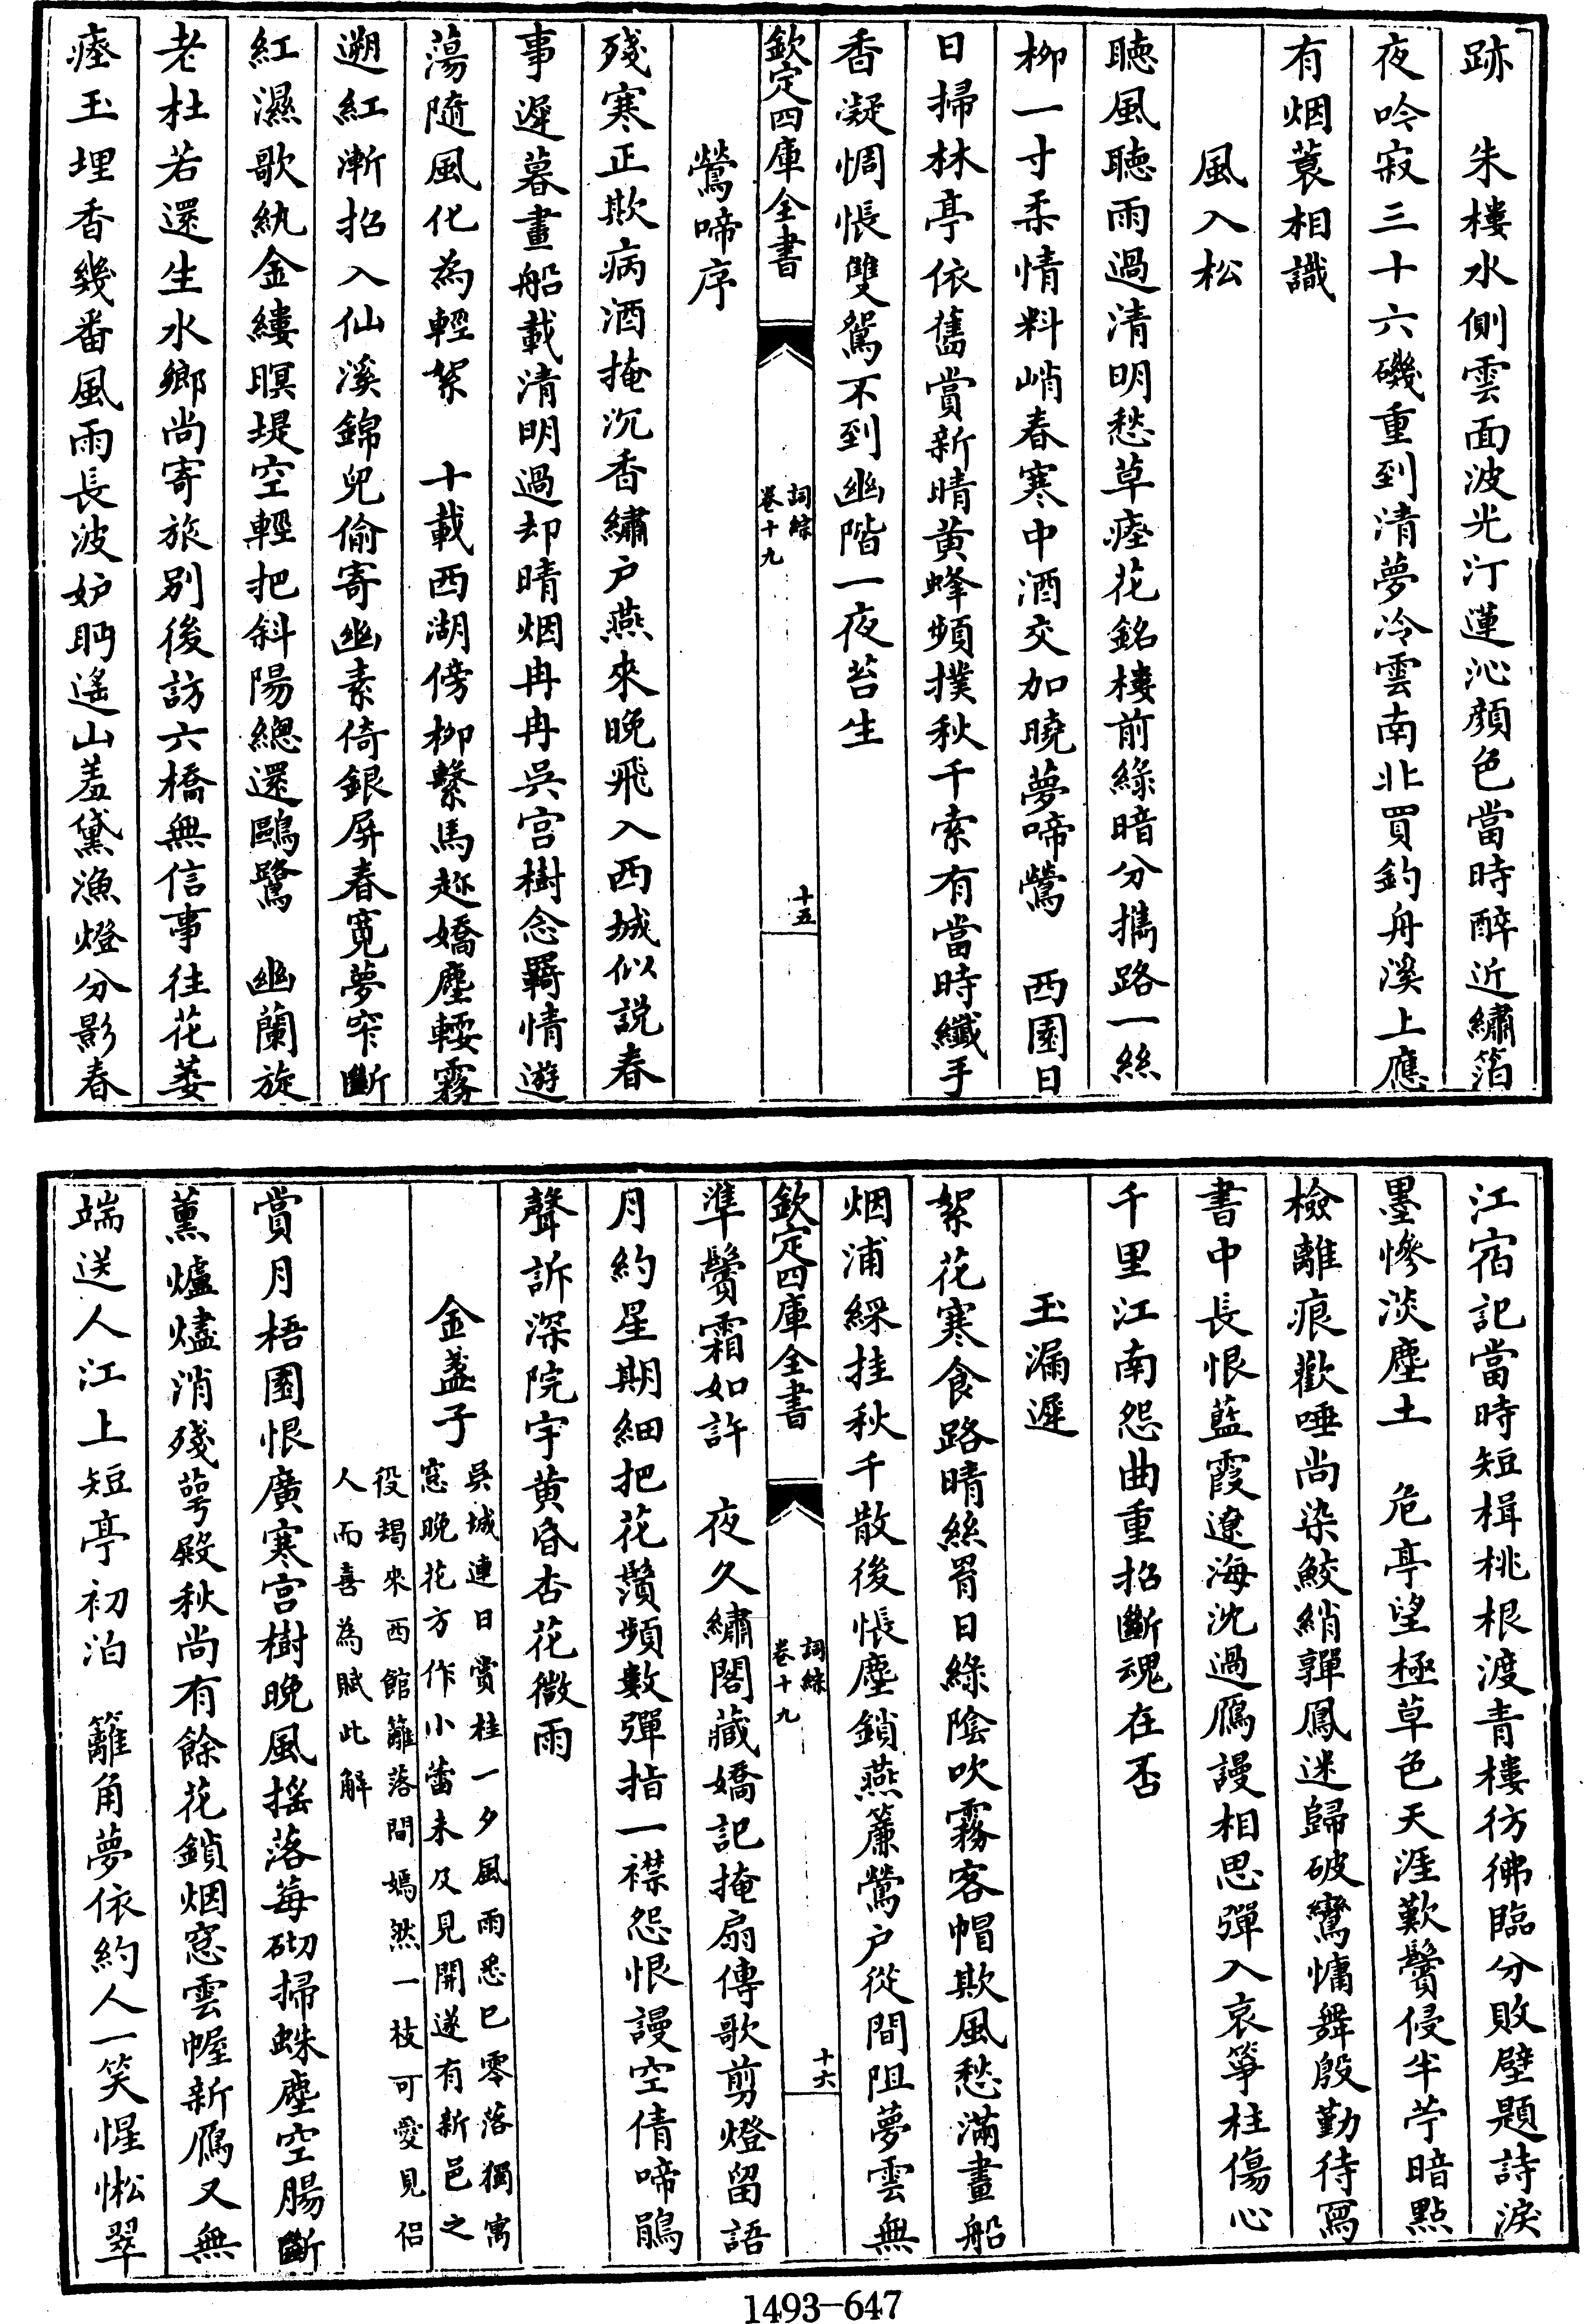 跡　朱樓水側雲面波光汀蓮沁顏色當時醉近繡箔
夜吟寂三十六磯重到清夢冷雲南北買釣舟溪上應
有烟蓑相識
風入松
聽風聽雨過清明愁草瘞花銘樓前綠暗分攜路一絲
柳一寸柔情料峭春寒中酒交加曉夢啼鶯　西園日
日掃林亭依舊賞新晴黃蜂頻撲秋千索有當時纖手
香凝惆悵雙鴛不到幽階一夜苔生
欽定四庫全書
詞綜
卷十九
十五
鶯啼序
殘寒正欺病酒掩沉香繡戶燕來晚飛入西城似說春
事遲暮畫船載清明過却晴烟冉冉吳宮樹念羇情遊
蕩隨風化為輕絮　十載西湖傍柳繫馬趁嬌塵輭霧
遡紅漸招入仙溪錦兒偷寄幽素倚銀屏春寬夢窄斷
紅濕歌紈金縷暝堤空輕把斜陽總還鷗鷺　幽蘭旋
老杜若還生水鄉尚寄旅別後訪六橋無信事往花萎
瘞玉埋香幾番風雨長波妒盻遙山羞黛漁燈分影春
江宿記當時短楫桃根渡青樓彷彿臨分敗壁題詩淚
墨慘淡塵土　危亭望極草色天涯歎鬢侵半苧暗點
檢離痕歡唾尚染鮫綃嚲鳳迷歸破鸞慵舞殷勤待寫
書中長恨藍霞遼海沈過鴈謾相思彈入哀箏柱傷心
千里江南怨曲重招斷魂在否
玉漏遲
絮花寒食路晴絲罥日綠陰吹霧客帽欺風愁滿畫船
烟浦綵挂秋千散後悵塵鎖燕簾鶯戶從間阻夢雲無
欽定四庫全書
詞綜
卷十九
十六
準鬢霜如許　夜久繡閣藏嬌記掩扇傳歌剪燈留語
月約星期細把花鬚頻數彈指一襟怨恨謾空倩啼鵑
聲訴深院宇黃昏杏花微雨
金盞子
吳城連日賞桂一夕風雨悉已零落獨寓
窓晚花方作小蕾未及見開遂有新邑之
役朅來西館籬落間嫣然一枝可愛見侣
人而喜為賦此解
賞月梧園恨廣寒宮樹晚風搖落莓砌掃蛛塵空腸斷
薰爐燼消殘萼殿秋尚有餘花鎖烟窓雲幄新鴈又無
端送人江上短亭初泊　籬角夢依約人一笑惺忪翠
1493—647